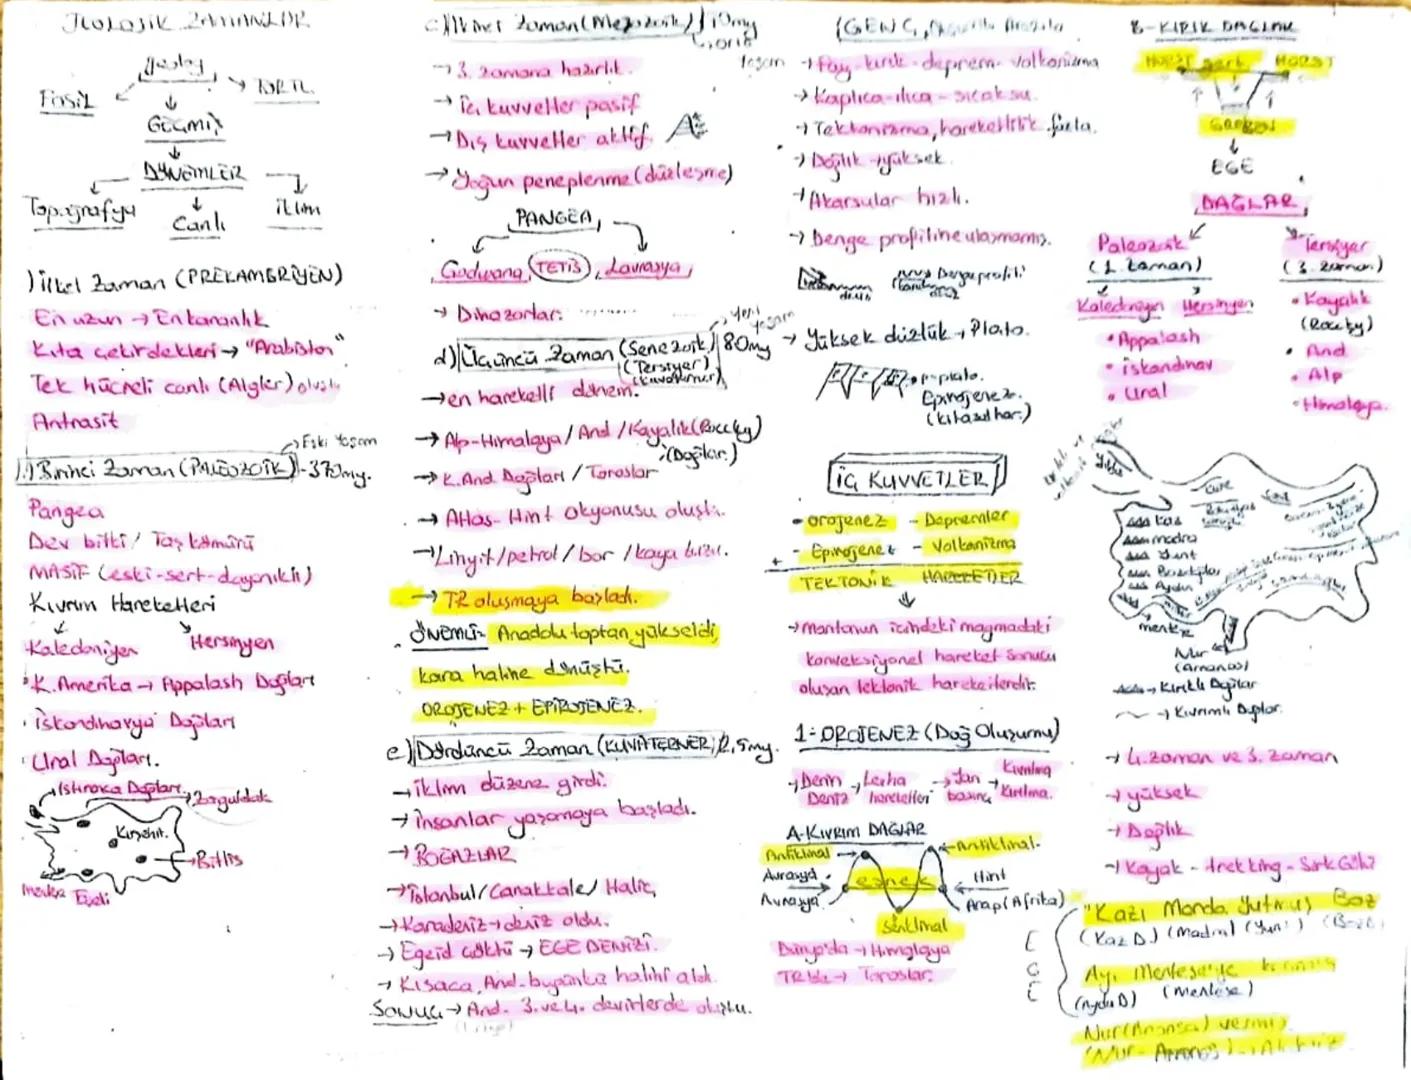 JEOLOJİK ZAMANLAR
Jeoloji
FOSİL
TORTUL
GEÇMİŞ
DÖNEMLER
Topografya
Canlı
iklim
) İlkel Zaman (PREKAMBRİYEN)
En uzun → En karanlık
Kıta çekirdekleri → "Arabistan"
Tek hücreli canlı (Algler) oluştu
Antrasit
Eski Yaşam
Birinci Zaman (PALEOZOİK) - 370my.
Pangea
Dev bitki / Taş kömürü
MASİF (eski-sert-dayanıklı)
Kıvrım Hareketleri
Kaledoniyen
Hersinyen
K. Amerika → Appalash Dağları
İskandinavya Dağları
Ural Dağları.
Istıranca Dağları
Zonguldak
Kırşehir.
Bitlis
Mentşe
c) İkinci Zaman (Mezozoik)
→ 3. zamana hazırlık.
→ İç kuvvetler pasif
→ Dış kuvvetler aktif.
→ Yoğun peneplenme (düzleşme)
PANGEA
Godwana, TETİS, Lavrasya
→ Dinazorlar. .......
Yeni Yaşam
d) Üçüncü Zaman (Senezoik) 80my
(Tersiyer)
→ en hareketli dönem.
→ Alp-Himalaya / And / Kayalık (Roccky)
(Dağlar.)
→ K. And Dağları / Toroslar
→ Atlas - Hint Okyanusu oluştu.
→ Linyit / petrol / bor / kaya tuzu.
→ TR oluşmaya başladı.
ÖNEMLİ - Anadolu toptan yükseldi,
kara haline dönüştü.
OROJENEZ + EPİROJENEZ.
e) Dördüncü Zaman (KUVATERNER) 2,5my.
→ İklim düzene girdi.
→ İnsanlar yaşamaya başladı.
→ BOĞAZLAR
→ İstanbul / Çanakkale / Haliç
→ Karadeniz → deniz oldu.
→ Egeid çöktü → EGE DENİZİ.
→ Kısaca, And. bugünkü halini aldı.
SONUÇ → And. 3. ve 4. devirlerde oluştu.
(GENÇ,
→ Fay - kırık - deprem - volkanizma
→ Kaplıca - ılıca - sıcak su.
→ Tektonizma, hareketlilik fazla.
→ Dağlık → yüksek.
→ Akarsular hızlı.
→ Denge profiline ulaşmamış.
Denge profili
→ Yüksek düzlük → Plato.
p → plato.
Epirojenez.
(kıtasal har.)
İÇ KUVVETLER
• Orojenez - Depremler
- Epirojenez - Volkanizma
+
TEKTONİK HAREKETLER
→ Mantonun içindeki magmadaki
konveksiyonel hareket sonucu
oluşan tektonik hareketlerdir.
1- OROJENEZ (Dağ Oluşumu)
→ Derin Deniz → Levha hareketleri → Yan basınç → Kıvrılma Kırılma.
A-KIVRIM DAĞLAR
Antiklinal
Antiklinal
Avrasya
Avrasya
esnek
Hint
Arap (Afrika)
Senklinal
Dünya'da → Himalaya
TR'de → Toroslar.
B-KIRIK DAĞLAR
HORST
HORST
GRABEN
EGE
DAĞLAR
Paleozoik
(1. zaman)
Tersiyer
(3. zaman)
Kaledoniyen
Hersinyen
• Appalash
• iskandinav
• Ural
• Kayalık
(Roccky)
• And
• Alp
• Himalaya.
Yıldız
Kaz
madra
Yunt
Bozdağlar
Aydın
menteşe
Nur
(Amanos)
→ Kırıklı Dağlar
→ Kıvrımlı Dağlar.
→ 4. zaman ve 3. zaman
→ yüksek
→ Dağlık
→ Kayak - trekking - Sirk Gölü
"Kazı Manda Yutmuş Boz
(Kaz D.) (Madra) (Yunt) (Bozd.
Ayı Menteşe'ye
(Aydın D) (Menteşe)
EGE
Nur (Amanos) vermiş